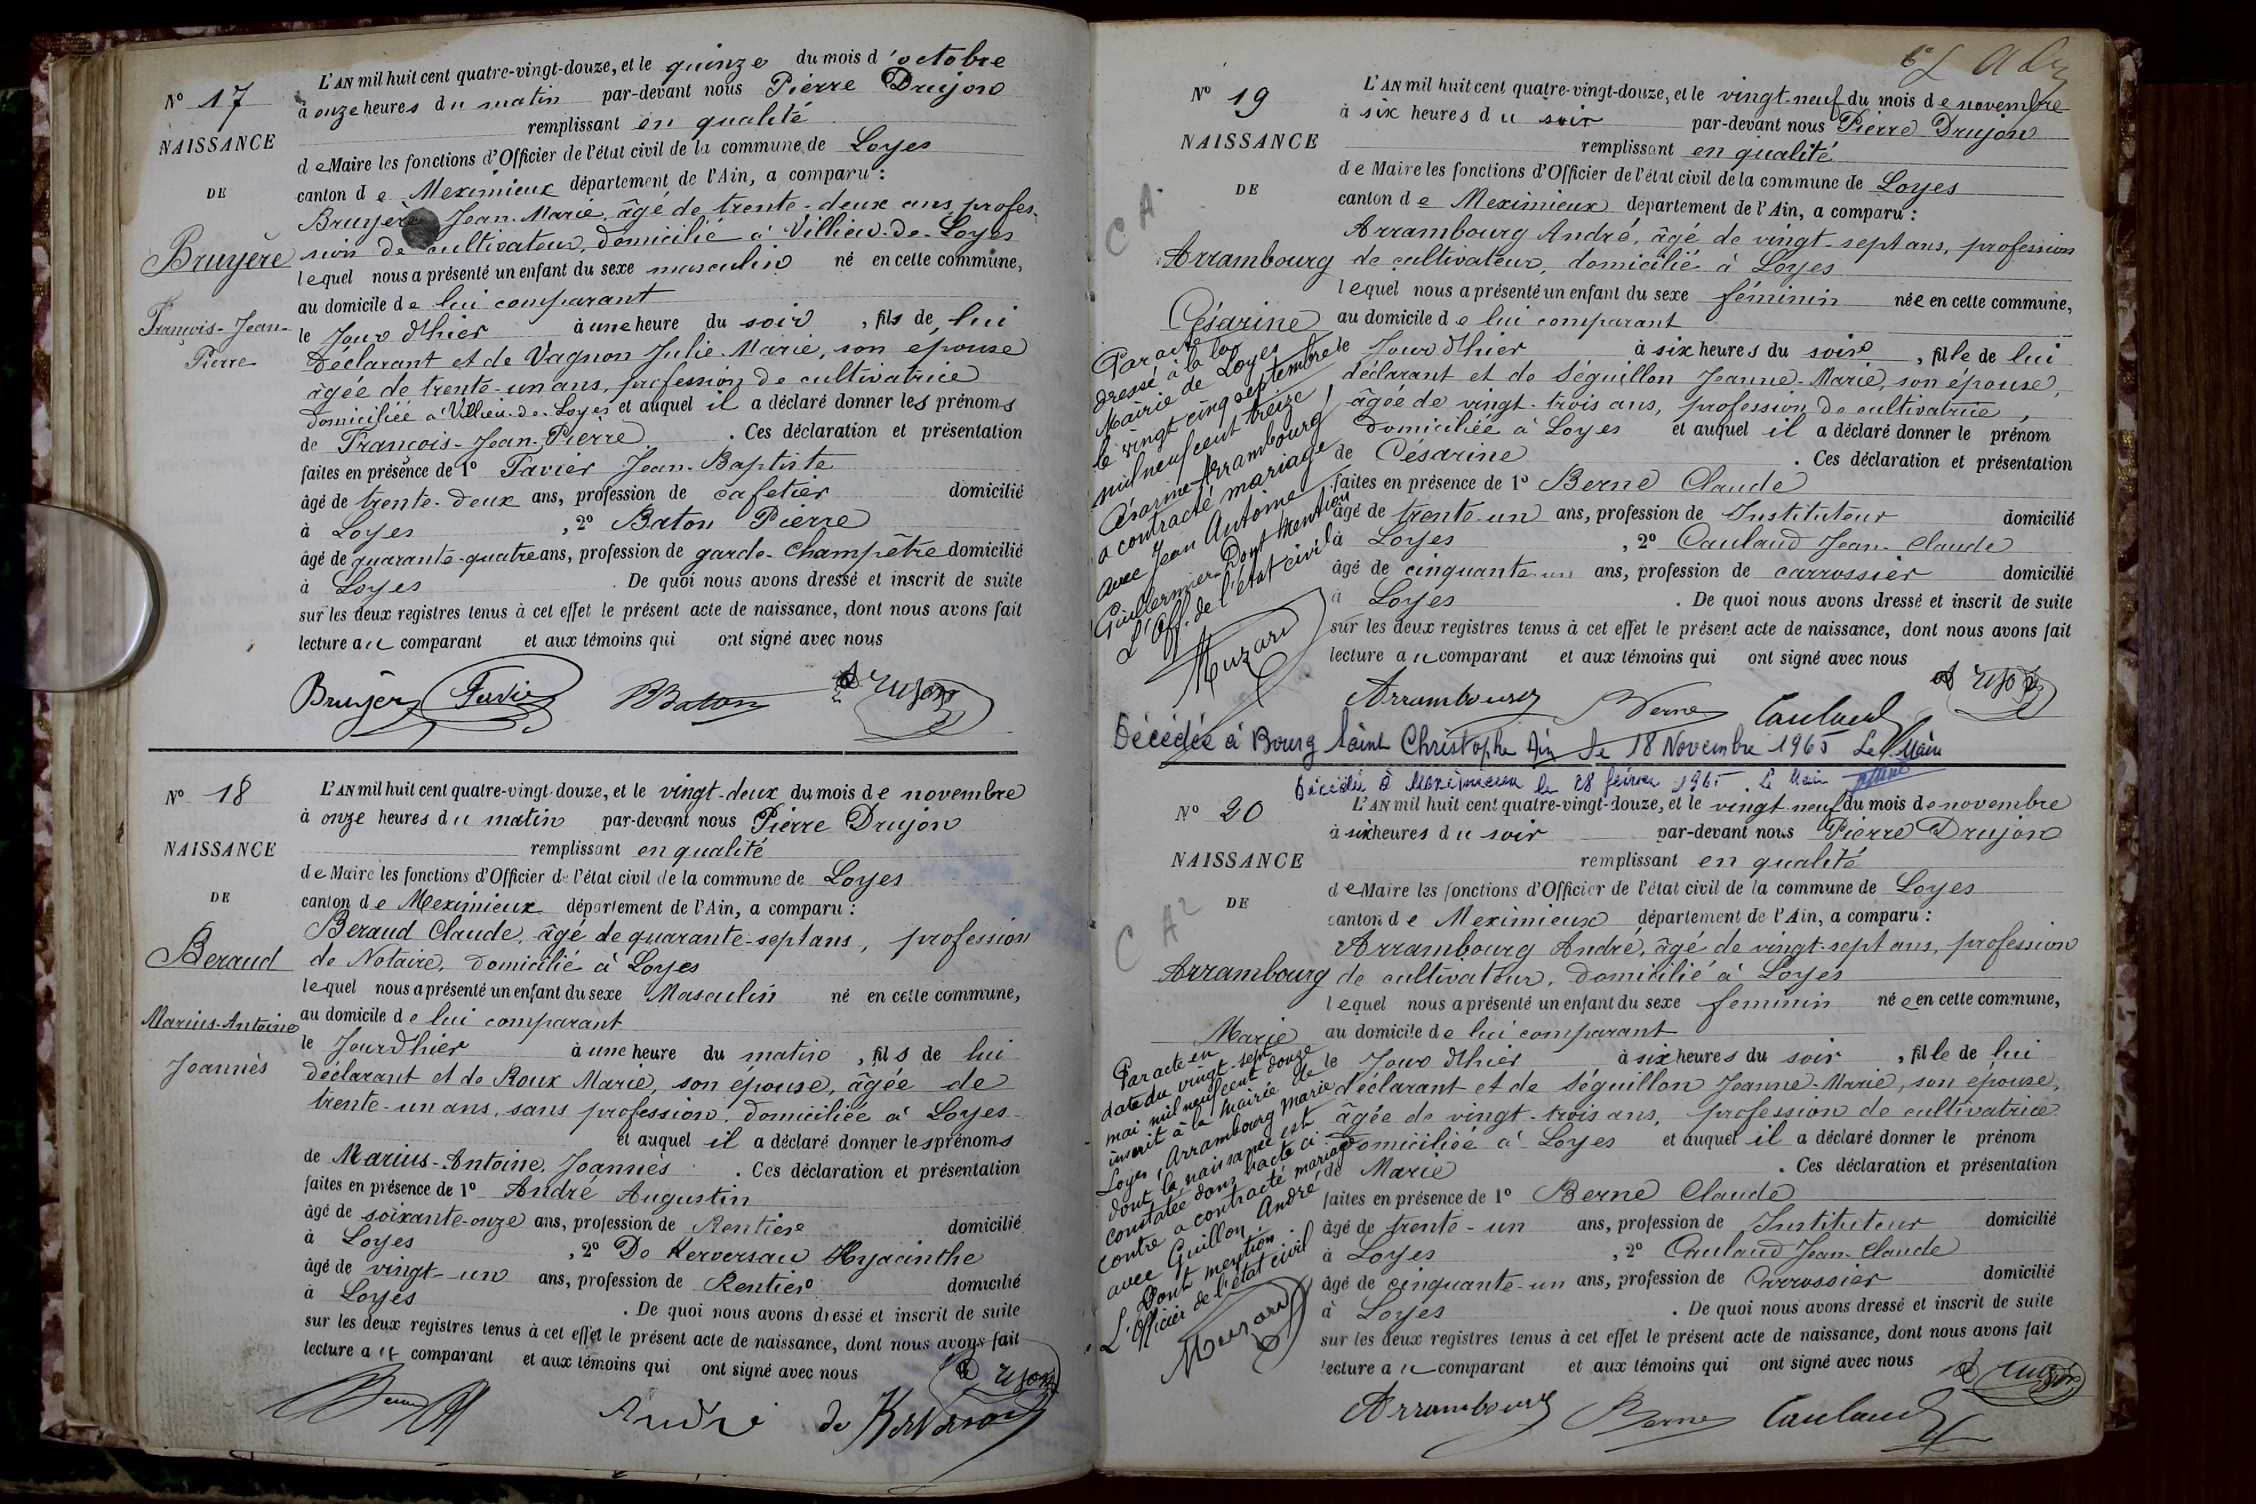 N° 17
NAISSANCE
DE
Bruyère
François-Jean-
Pierre
L'AN mil huit cent quatre-vingt-douze, et le quinze du mois d'octobre
à onze heures du matin par-devant nous Pierre Drujon
remplissant en qualité
de Maire les fonctions d'Officier de l'état civil de la commune de Loyes
canton de Meximieux département de l'Ain, a comparu :
Bruyère Jean-Marie, âgé de trente-deux ans, profes-
sion de cultivateur, domicilié à Villieu-de-Loyes
lequel nous a présenté un enfant du sexe masculin né en cette commune,
au domicile de lui comparant
le Jour d'hier à une heure du soir, fils de lui
Déclarant et de Vagnon Julie-Marie, son épouse
âgée de trente-un ans, profession de cultivatrice
domiciliée à Villieu-de-Loyes et auquel il a déclaré donner les prénoms
de François-Jean-Pierre. Ces déclaration et présentation
faites en présence de 1° Favier Jean-Baptiste
âgé de trente-deux ans, profession de cafetier domicilié
à Loyes, 2° Baton Pierre
âgé de quarante-quatre ans, profession de garde-Champêtre domicilié
à Loyes. De quoi nous avons dressé et inscrit de suite
sur les deux registres tenus à cet effet le présent acte de naissance, dont nous avons fait
lecture au comparant et aux témoins qui ont signé avec nous
Bruyère Favier Baton Drujon
N° 18
NAISSANCE
DE
Beraud
Marius-Antoine
Joannès
L'AN mil huit cent quatre-vingt-douze, et le vingt-deux du mois de novembre
à onze heures du matin par-devant nous Pierre Drujon
remplissant en qualité
de Maire les fonctions d'Officier de l'état civil de la commune de Loyes
canton de Meximieux département de l'Ain, a comparu :
Beraud Claude, âgé de quarante-sept ans, profession
de Notaire, domicilié à Loyes
lequel nous a présenté un enfant du sexe Masculin né en cette commune,
au domicile de lui comparant
le Jour d'hier à une heure du matin, fils de lui
déclarant et de Roux Marie, son épouse, âgée de
trente-un ans, sans profession, domiciliée à Loyes
et auquel il a déclaré donner les prénoms
de Marius-Antoine, Joannes. Ces déclaration et présentation
faites en présence de 1° André Augustin
âgé de soixante-onze ans, profession de Rentier domicilié
à Loyes, 2° De Kerversau Hyacinthe
âgé de vingt-un ans, profession de Rentier domicilié
à Loyes. De quoi nous avons dressé et inscrit de suite
sur les deux registres tenus à cet effet le présent acte de naissance, dont nous avons fait
lecture au comparant et aux témoins qui ont signé avec nous
Drujon
André de Kerversau
N° 19
NAISSANCE
DE
C A
Arrambourg
Césarine
Par acte
dressé à la
Mairie de Loyes
le vingt cinq septembre
mil neuf cent treize,
Césarine Arrambourg
a contracté mariage
avec Jean Antoine
Dont mention
L'Off. de l'état civil
Muzard
L'AN mil huit cent quatre-vingt-douze, et le vingt-neuf du mois de novembre
à six heures du soir par-devant nous Pierre Drujon
remplissant en qualité
de Maire les fonctions d'Officier de l'état civil de la commune de Loyes
canton de Meximieux département de l'Ain, a comparu :
Arrambourg André, âgé de vingt-sept ans, profession
de cultivateur, domicilié à Loyes
lequel nous a présenté un enfant du sexe féminin née en cette commune,
au domicile de lui comparant
le Jour d'hier à six heures du soir, fille de lui
déclarant et de Séguillon Jeanne-Marie, son épouse,
âgée de vingt-trois ans, profession de cultivatrice,
domiciliée à Loyes et auquel il a déclaré donner le prénom
de Césarine. Ces déclaration et présentation
faites en présence de 1° Berne Claude
âgé de trente-un ans, profession de Instituteur domicilié
à Loyes, 2° Caulaud Jean-Claude
âgé de cinquante-un ans, profession de carrossier domicilié
à Loyes. De quoi nous avons dressé et inscrit de suite
sur les deux registres tenus à cet effet le présent acte de naissance, dont nous avons fait
lecture au comparant et aux témoins qui ont signé avec nous
Arrambourg Berne Caulaud Drujon
Décédée à Bourg Saint Christophe Ain le 18 Novembre 1965 Le Maire
Décédée à Meximieux le 28 février 1965. Le Maire
N° 20
NAISSANCE
DE
C A 2
Arrambourg
Marie
Par acte en
date du vingt-sept
mai mil neuf cent douze
inscrit à la Mairie de
Loyes, Arrambourg Marie
dont la naissance est
constatée dans l'acte ci
contre a contracté mariage
avec Guillon André
Dont mention.
L'Officier de l'état civil
Muzard
L'AN mil huit cent quatre-vingt-douze, et le vingt-neuf du mois de novembre
à six heures du soir par-devant nous Pierre Drujon
remplissant en qualité
de Maire les fonctions d'Officier de l'état civil de la commune de Loyes
canton de Meximieux département de l'Ain, a comparu :
Arrambourg André, âgé de vingt-sept ans, profession
de cultivateur, domicilié à Loyes
lequel nous a présenté un enfant du sexe feminin née en cette commune,
au domicile de lui comparant
le Jour d'hier à six heures du soir, fille de lui
déclarant et de Séguillon Jeanne-Marie, son épouse,
âgée de vingt-trois ans, profession de cultivatrice
domiciliée à Loyes et auquel il a déclaré donner le prénom
de Marie. Ces déclaration et présentation
faites en présence de 1° Berne Claude
âgé de trente-un ans, profession de Instituteur domicilié
à Loyes, 2° Caulaud Jean-Claude
âgé de cinquante-un ans, profession de Carrossier domicilié
à Loyes. De quoi nous avons dressé et inscrit de suite
sur les deux registres tenus à cet effet le présent acte de naissance, dont nous avons fait
lecture au comparant et aux témoins qui ont signé avec nous
Drujon
Arrambourg Berne Caulaud